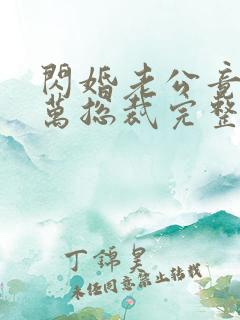 閃婚老公竟
萬總裁完整
丁錦昊
未經同意禁止轉載